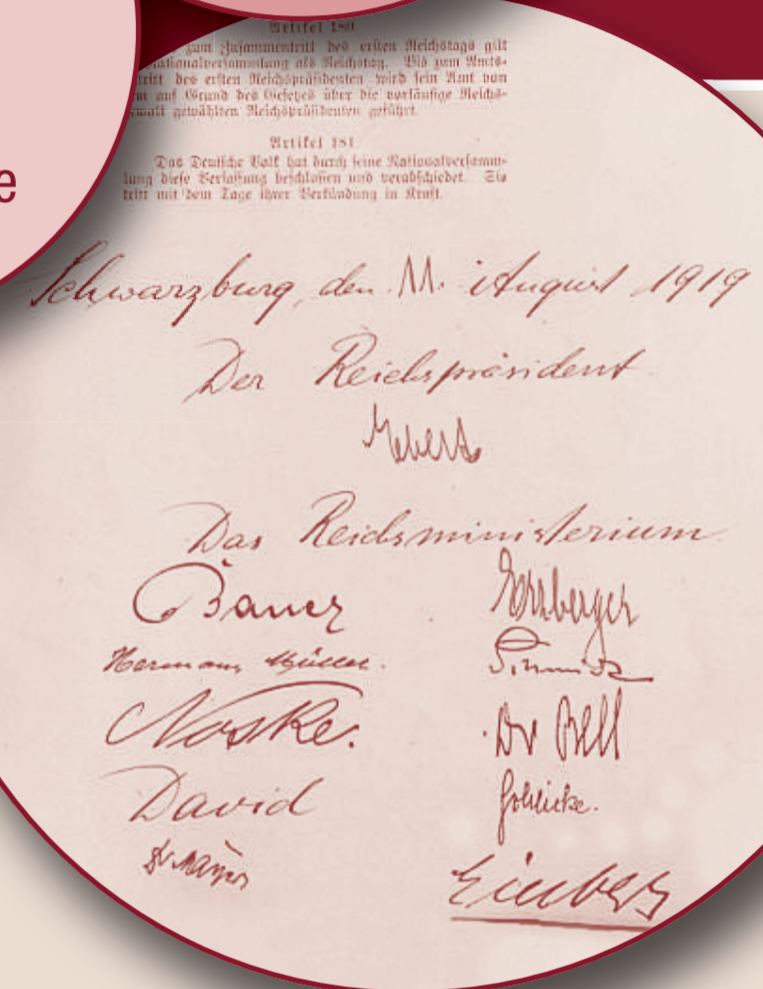 e
Artikel 180
zum Zusammentritt des ersten Reichstags gilt
ationalversammlung als Reichstag. Bis zum Amts-
tritt des ersten Reichspräsidenten wird sein Amt von
m auf Grund des Gesetzes über die vorläufige Reichs-
ewalt gewählten Reichspräsidenten geführt.
Artikel 181
Das Deutsche Volk hat durch seine Nationalversamm-
lung diese Verfassung beschlossen und verabschiedet. Sie
tritt mit dem Tage ihrer Verkündung in Kraft.
Schwarzburg, den 11. August 1919
Der Reichspräsident
Ebert
Das Reichsministerium
Bauer Erzberger
Hermann Müller. Schmidt
Noske. Dr Bell
David Schlicke.
Dr. Mayer